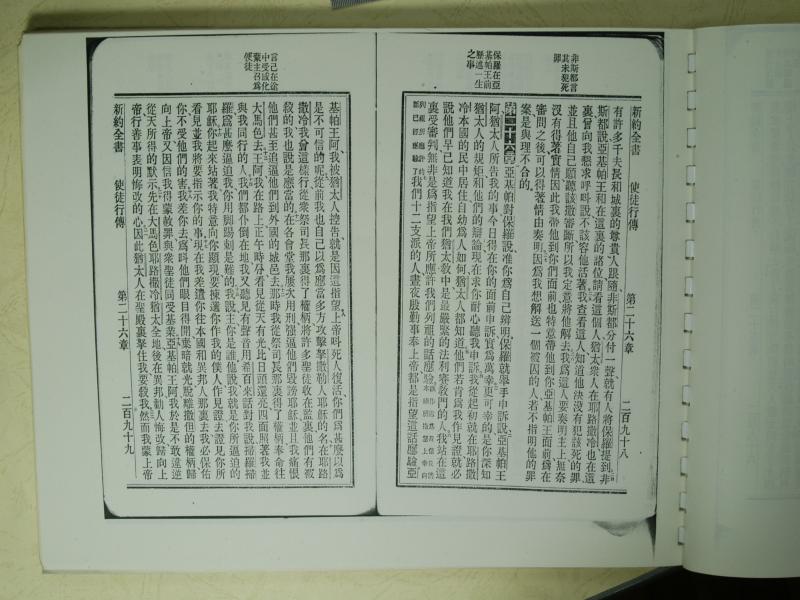 新約全書
使徒行傳
第二十六章
二百九十八
非斯都言
其未犯死
罪
保羅在亞
基帕王前
歷述一生
之事
有許多千夫長和城裏的尊貴人跟隨非斯都分付一聲就有人將保羅提到非
斯都說亞基帕王和在這裏的諸位請看這個人猶太衆人在耶路撒冷也在這
裏曾向我懇求呼呌說不該容他活著我查看這人知道他決沒有犯該死的罪
並且他自己願聽該撒審斷所以我定意將他解去我爲這人要奏明主上無奈
沒有得著實情因此我帶他到你們面前也特意帶他到你亞基帕王面前爲在
審問之後可以得著情由奏明因爲我想解送一個被囚的人若不指明他的罪
案是與理不合的
第二十六章亞基帕對保羅說准你爲自己辨明保羅就舉手申訴說亞基帕王
阿猶太人所告我的事今日得在你的面前申訴實爲萬幸更可幸的是你深知
猶太人的規矩和他們的辯論現在求你耐心聽我申訴我從起初就在耶路撒
冷本國的民中居住自幼爲人如何猶太人都知道他們若肯爲我作見證就必
說他們早已知道我在我們猶太教中是最嚴緊的法利賽教門的人我站在這
裏受審判無非是爲指望上帝所應許我們列祖的話應驗
我們十二支派的人晝夜殷勤事奉上帝都是指望這話應驗亞
言己在途
中受感化
蒙主召爲
使徒
基帕王阿我被猶太人控告就是因這指望上帝呌死人復活你們爲甚麼以爲
是不可信的呢從前我也自己以爲應當多方攻擊拏撒勒人耶穌的名在耶路
撒冷我曾這樣行從衆祭司長那裏得了權柄將許多聖徒收在監裏他們有被
殺的我也說是應當的在各會堂我屢次用刑强逼他們毀謗耶穌並且我痛恨
他們甚至追逼他們到外國的城邑去那時我從祭司長那裏得了權柄奉命往
大馬色去王阿我在路上正午時分看見從天有光比日頭還亮四面照著我並
與我同行的人我們都仆倒在地我又聽見有聲音用希百來話對我說掃羅掃
羅爲甚麼逼迫我你用脚踢刺是難的我說主你是誰他說我就是你所逼迫的
耶穌你起來站著我特意向你顯現要揀選你作我的僕人作見證去證見你所
看見並我將要指示你的事現在我差遣你往本國和異邦人那裏去我必保佑
你不受他們的害我差你去爲呌他們眼目得開棄暗就光脫離撒但的權柄歸
向上帝又因信我得蒙赦罪與衆聖徒同受基業亞基帕王阿我於是不敢違逆
從天所得的默示先在大馬色耶路撒冷猶太全地後在異邦勸人悔改歸向上
帝行善事表明悔改的心因此猶太人在聖殿裏拏住我要殺我然而我蒙上帝
新約全書
使徒行傳
第二十六章
二百九十九